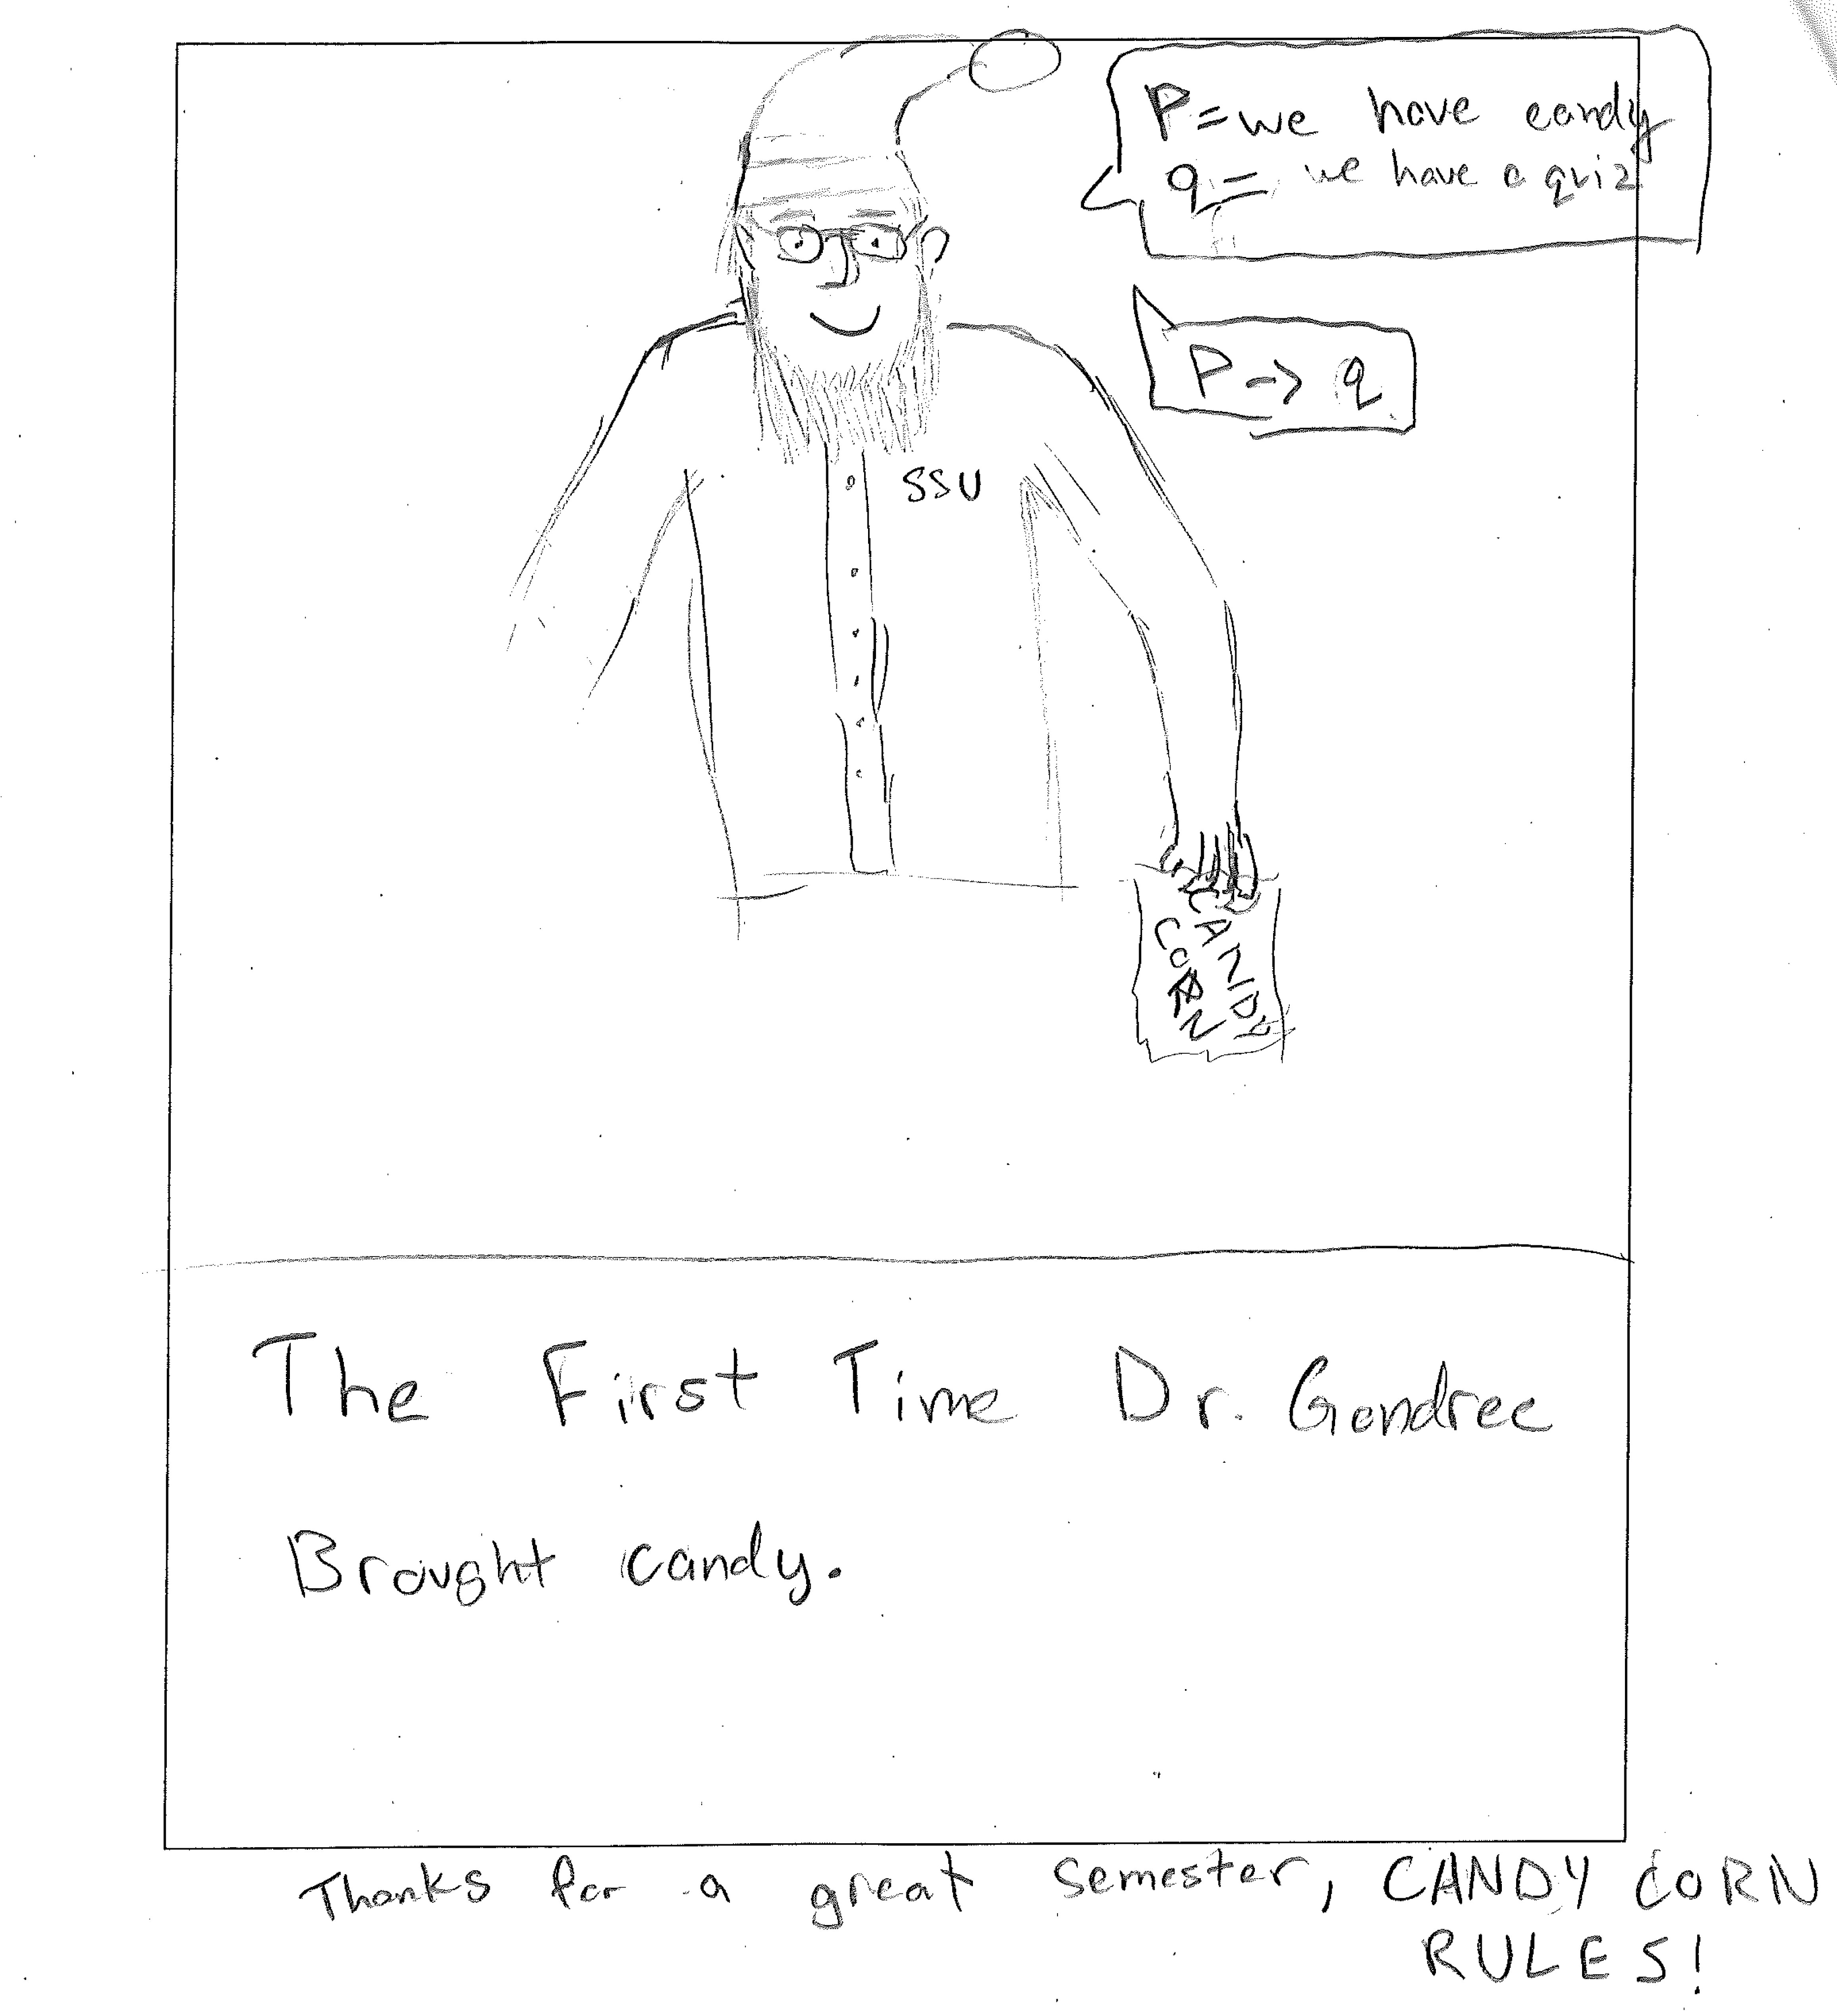 P = we have candy
q = we have a quiz
P -> q
SSU
CANDY
CORN
The First Time Dr. Gondree
Brought candy.
Thanks for a great semester, CANDY CORN
RULES!